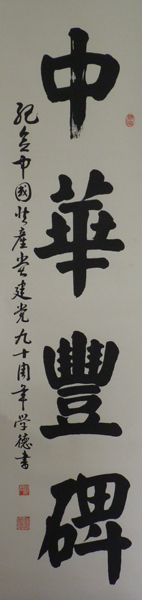 中華豐碑
纪念中國共產党建党九十周年学德書